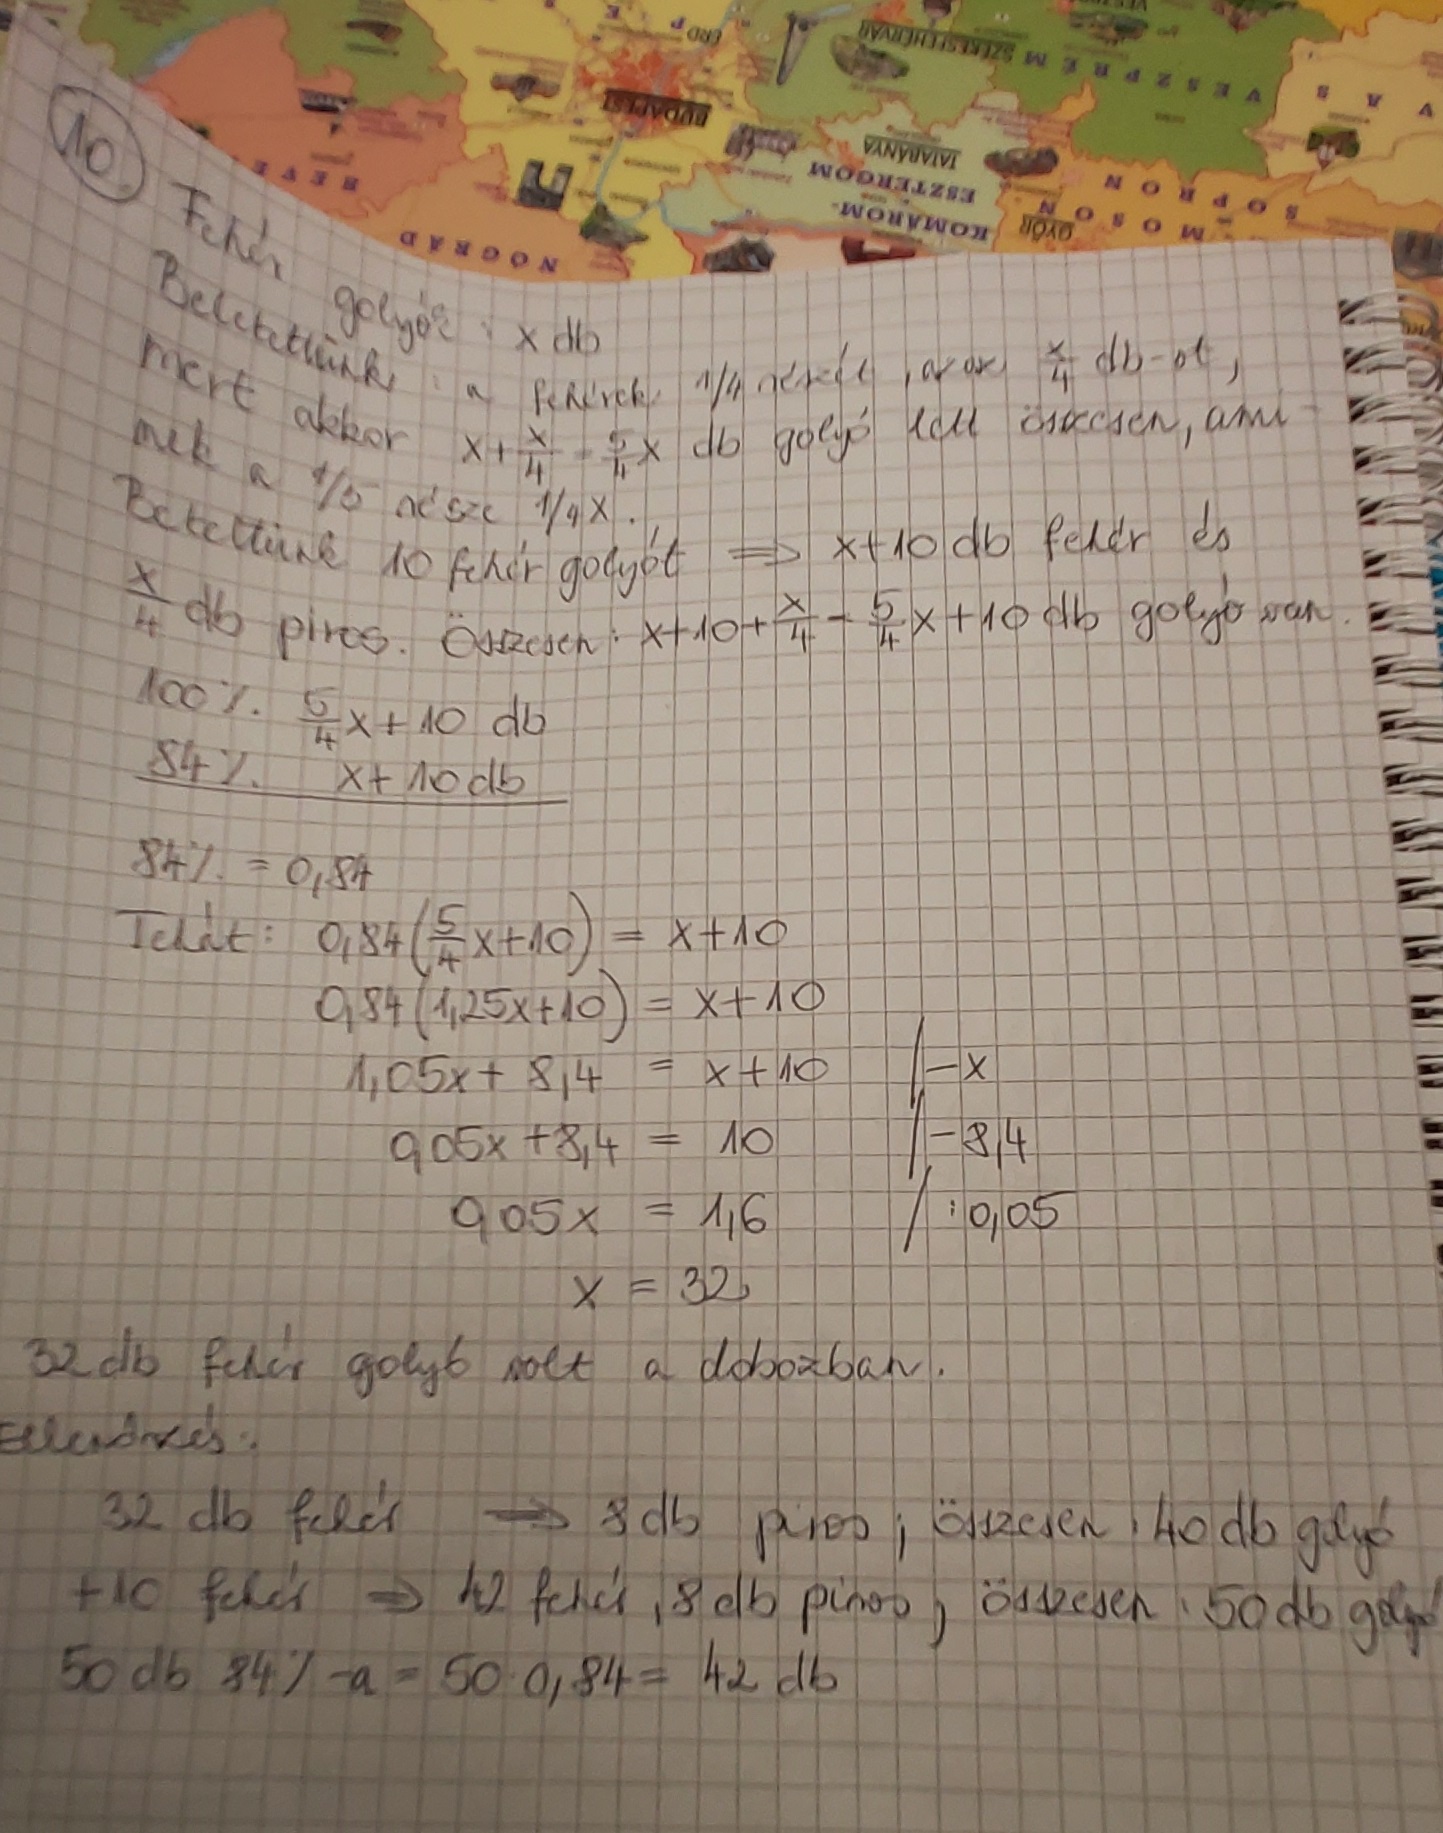 ÉRD P
SZÉKESFEHÉRVÁR
VESZPRÉM
VAS
BUDAPEST
TATABÁNYA
KOMÁROM-
ESZTERGOM
GYŐR
MOSON
SOPRON
HEVE
NÓGRÁD
10.
Fehér golyók: x db
Beletettünk: a fehérek 1/4 részét, azaz x/4 db-ot,
mert akkor x + x/4 = 5/4 x db golyó lett összesen, ami-
nek a 1/5 része 1/4 x.
Betettünk 10 fehér golyót ⇒ x+10 db fehér és
x/4 db piros. Összesen: x+10+x/4 = 5/4 x+10 db golyó van.
100% 5/4 x+10 db
84% x+10 db
84% = 0,84
Tehát: 0,84(5/4 x+10) = x+10
0,84(1,25x+10) = x+10
1,05x + 8,4 = x+10 /-x
0,05x + 8,4 = 10 /-8,4
0,05x = 1,6 / :0,05
x = 32
32 db fehér golyó volt a dobozban.
Ellenőrzés:
32 db fehér ⇒ 8 db piros; összesen: 40 db golyó
+10 fehér ⇒ 42 fehér, 8 db piros; összesen: 50 db golyó
50 db 84%-a = 50·0,84 = 42 db